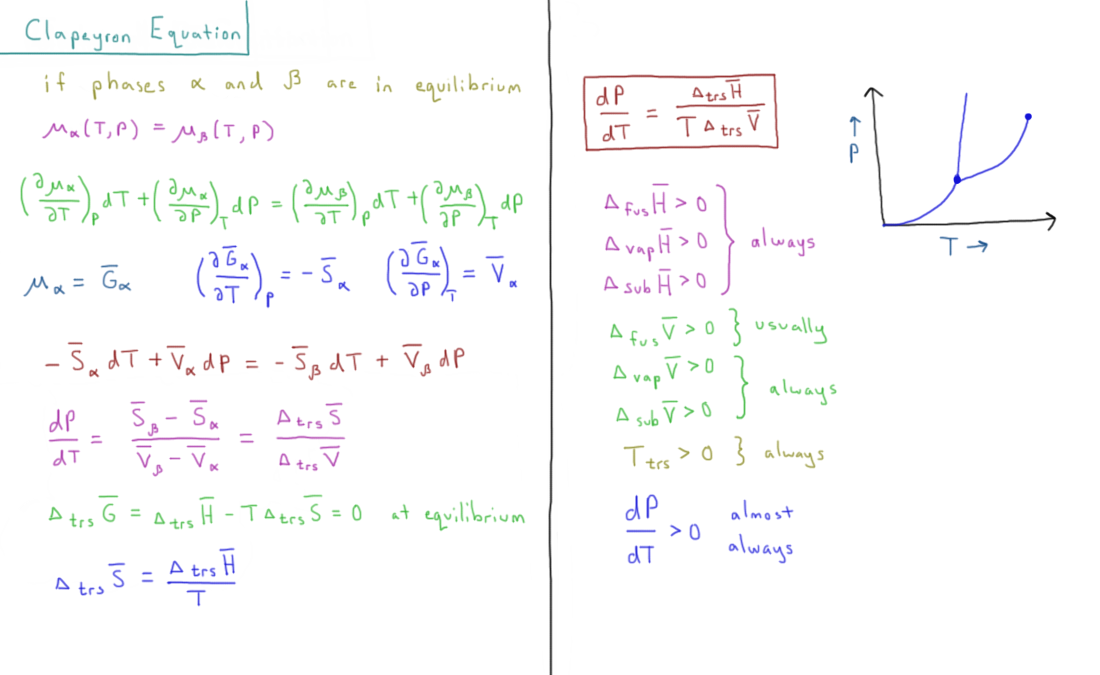 Clapeyron Equation
if phases α and β are in equilibrium
μα(T,P) = μβ(T,P)
(∂μα/∂T)P dT + (∂μα/∂P)T dP = (∂μβ/∂T)P dT + (∂μβ/∂P)T dP
μα = G̅α (∂G̅α/∂T)P = -S̅α (∂G̅α/∂P)T = V̅α
-S̅α dT + V̅α dP = -S̅β dT + V̅β dP
dP/dT = (S̅β - S̅α)/(V̅β - V̅α) = ΔtrsS̅/ΔtrsV̅
ΔtrsG̅ = ΔtrsH̅ - TΔtrsS̅ = 0 at equilibrium
ΔtrsS̅ = ΔtrsH̅/T
dP/dT = ΔtrsH̅/(T ΔtrsV̅)
↑
P
T →
ΔfusH̅ > 0
ΔvapH̅ > 0 } always
ΔsubH̅ > 0
ΔfusV̅ > 0 } usually
ΔvapV̅ > 0
} always
ΔsubV̅ > 0
Ttrs > 0 } always
dP/dT > 0 almost
always